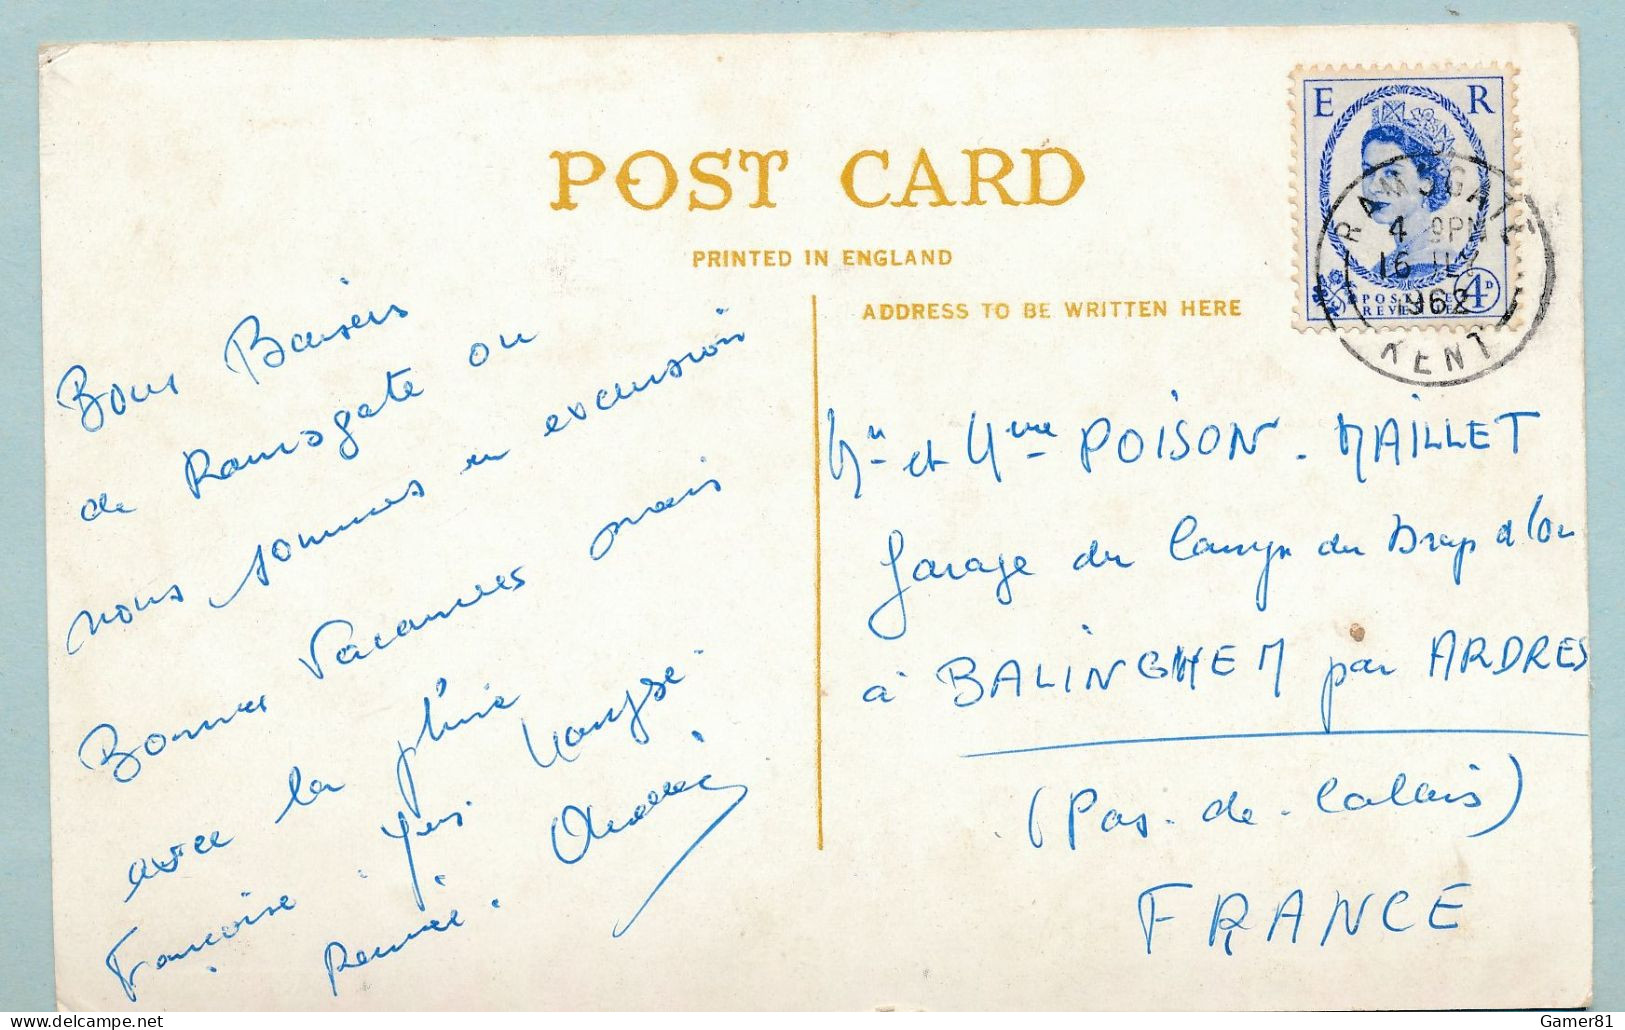 POST CARD
PRINTED IN ENGLAND
ADDRESS TO BE WRITTEN HERE
E R
POSTAGE
REVENUE
4D
RAMSGATE
4 PM
16 JLY
1962
KENT
Bons Baisers
de Ramsgate ou
nous sommes en excursion
Bonnes Vacances mais
avec la pluie
Françoise.
Renée.
et Mme POISON - MAILLET
Garage du Camp du Drap d'or
à BALINGHEM par ARDRES
(Pas-de-Calais)
FRANCE
delcampe.net
Gamer81